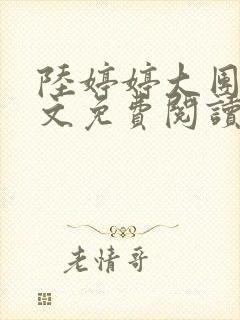 陸婷婷大團
文免費閱讀
老情哥